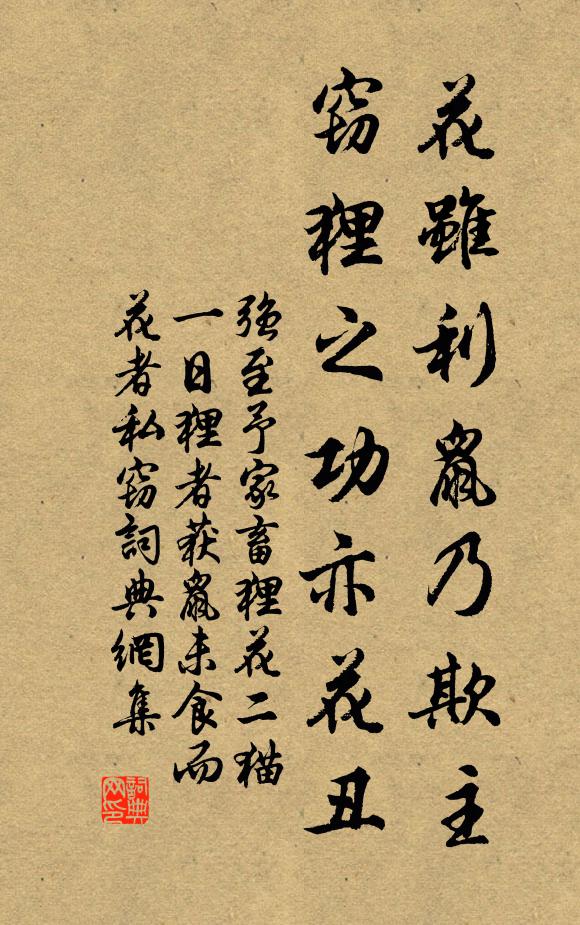 花雖利鼠乃欺主
窃狸之功亦花丑
強至予家畜狸花二猫
一日狸者获鼠未食而
花者私窃詞典網集
詞典
网印